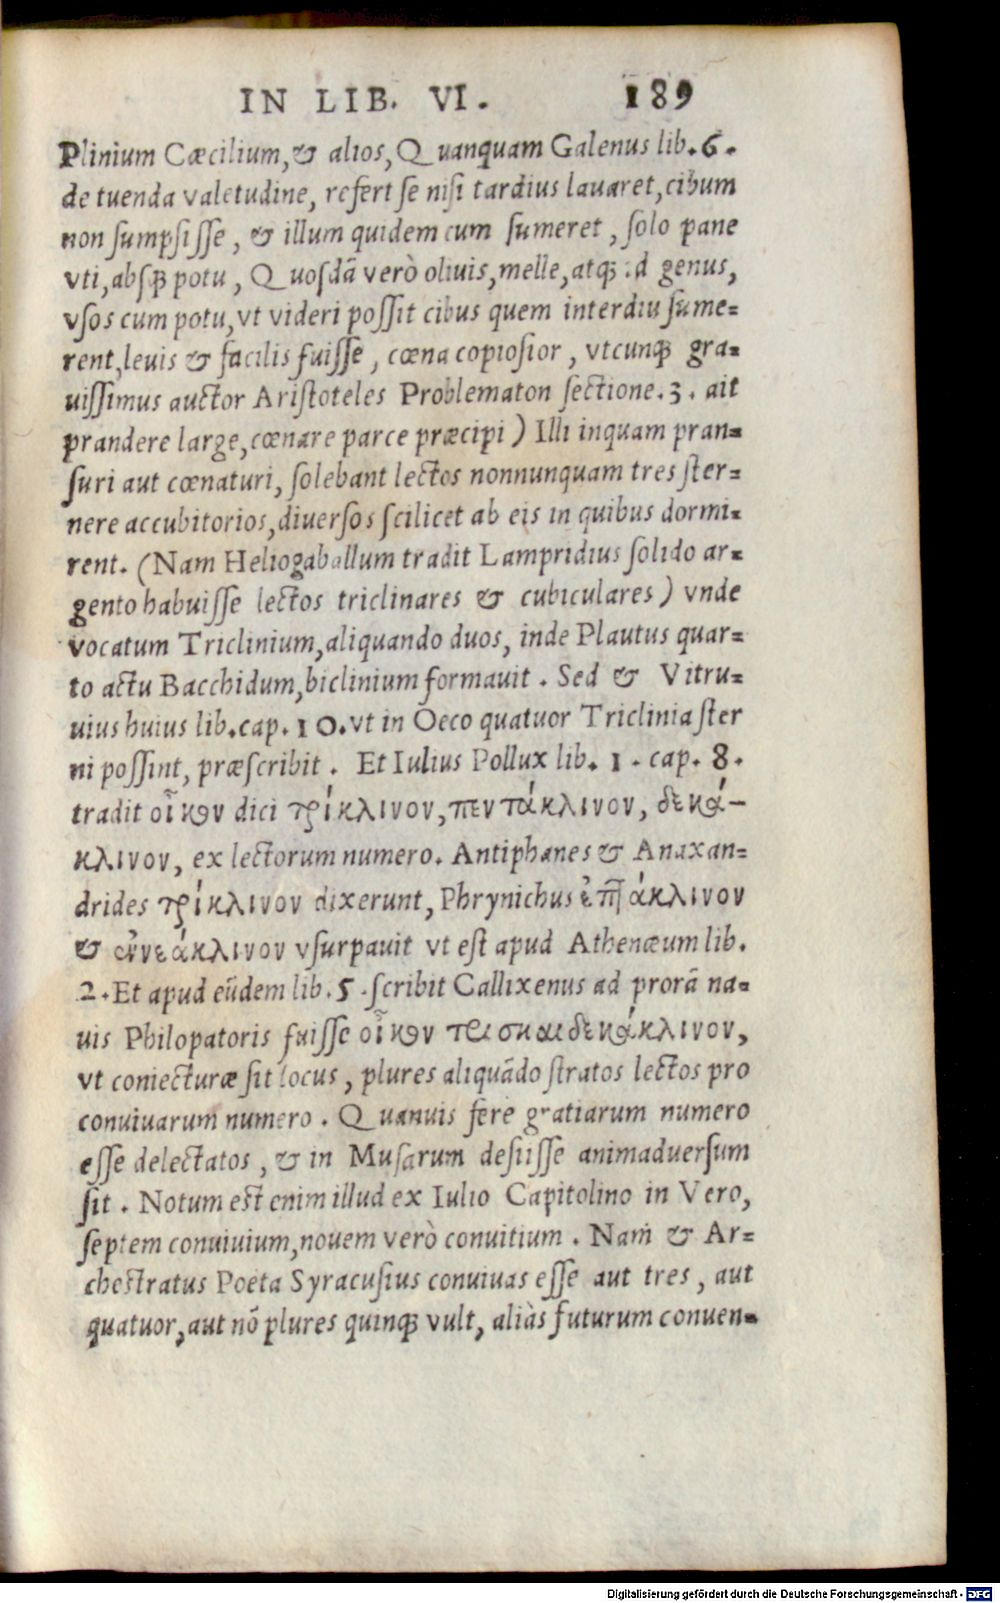 IN LIB. VI. 189
Plinium Cæcilium, & alios, Quanquam Galenus lib. 6.
de tuenda valetudine, refert se nisi tardius lavaret, cibum
non sumpsisse, & illum quidem cum sumeret, solo pane
vti, absq; potu, Quosdā verò oliuis, melle, atq; id genus,
vsos cum potu, vt videri possit cibus quem interdiu sume=
rent, leuis & facilis fuisse, cœna copiosior, vtcunq; gra=
uissimus auctor Aristoteles Problematon sectione. 3. ait
prandere large, cœnare parce præcipi) Illi inquam pran=
suri aut cœnaturi, solebant lectos nonnunquam tres ster=
nere accubitorios, diuersos scilicet ab eis in quibus dormi=
rent. (Nam Heliogaballum tradit Lampridius solido ar=
gento habuisse lectos triclinares & cubiculares) vnde
vocatum Triclinium, aliquando duos, inde Plautus quar=
to actu Bacchidum, biclinium formauit. Sed & Vitru=
uius huius lib. cap. 10. vt in Oeco quatuor Triclinia ster
ni possint, præscribit. Et Iulius Pollux lib. 1. cap. 8.
tradit οἶκον dici τρίκλινον, πεντάκλινον, δεκά-
κλινον, ex lectorum numero. Antiphanes & Anaxan=
drides τρίκλινον dixerunt, Phrynichus ἑπτάκλινον
& ἐννεάκλινον vsurpauit vt est apud Athenæum lib.
2. Et apud eūdem lib. 5. scribit Callixenus ad prorā na=
uis Philopatoris fuisse οἶκον τρισκαιδεκάκλινον,
vt coniecturæ sit locus, plures aliquādo stratos lectos pro
conuiuarum numero. Quanuis fere gratiarum numero
esse delectatos, & in Musarum desiisse animaduersum
sit. Notum est enim illud ex Iulio Capitolino in Vero,
septem conuiuium, nouem verò conuitium. Nam & Ar=
chestratus Poeta Syracusius conuiuas esse aut tres, aut
quatuor, aut nō plures quinq; vult, aliàs futurum conuen=
Digitalisierung gefördert durch die Deutsche Forschungsgemeinschaft - DFG